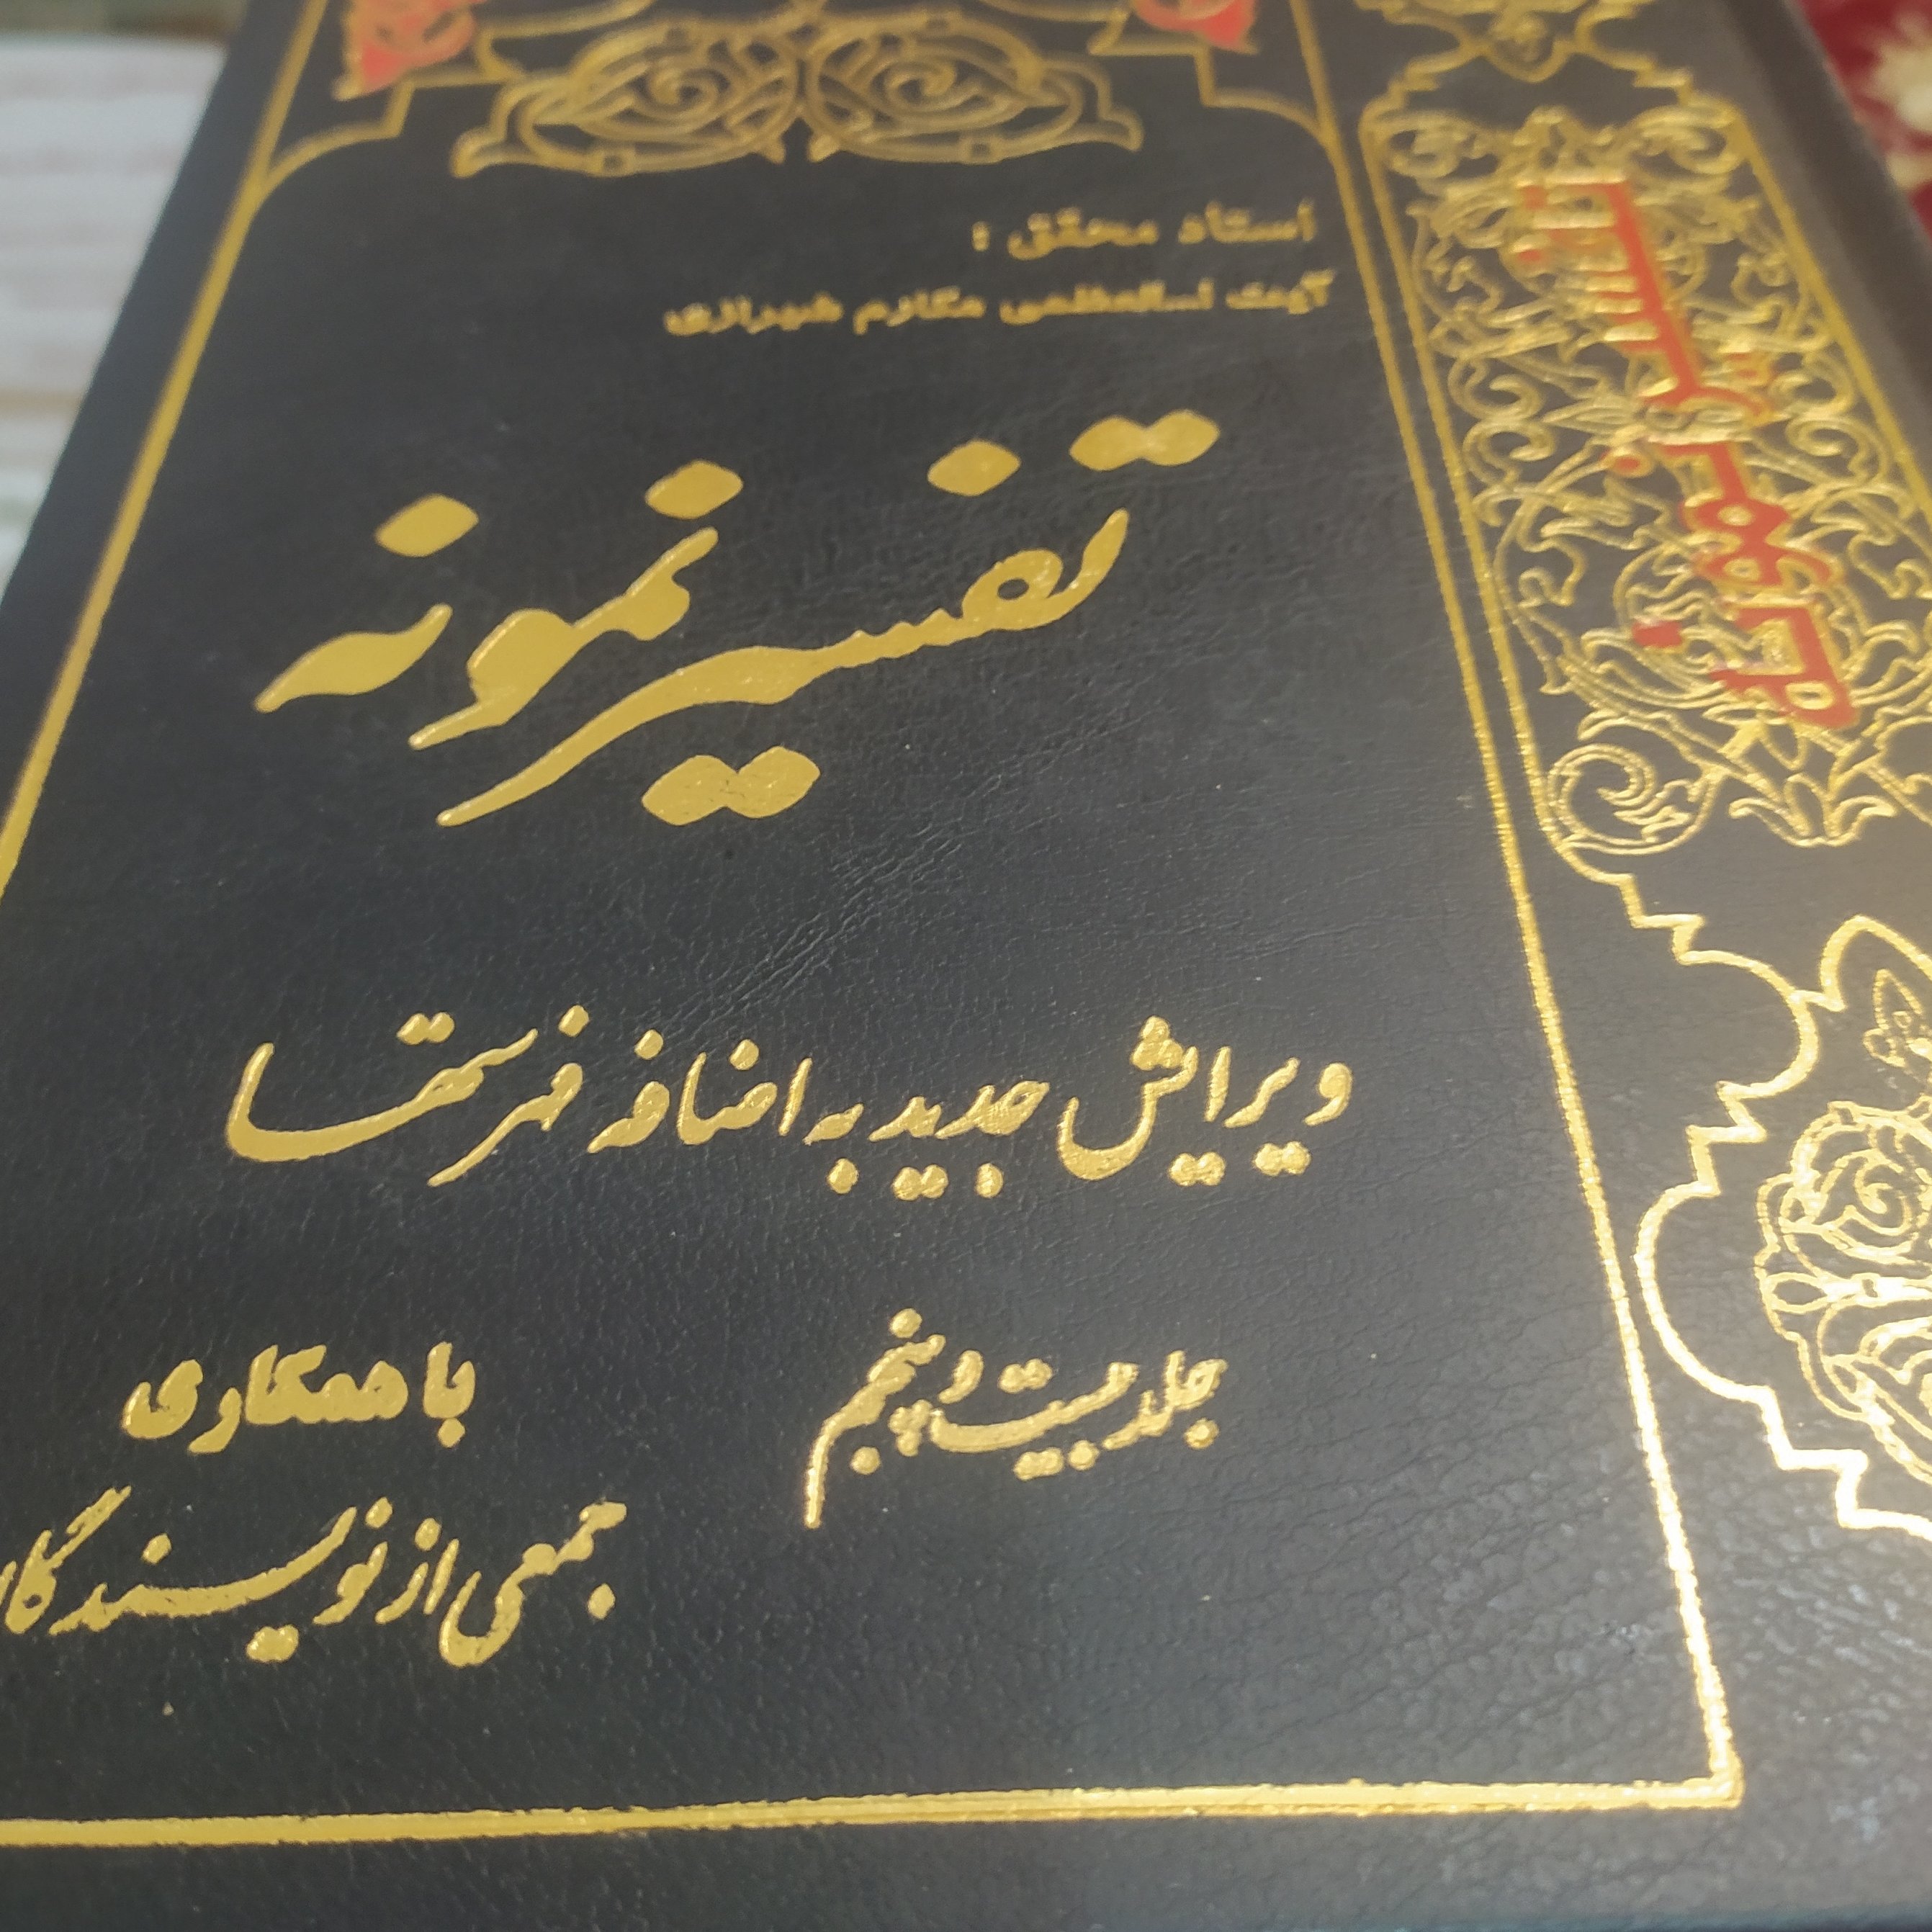 استاد محقق :
آیت الله العظمی مکارم شیرازی
تفسیر نمونه
ویرایش جدید به اضافه فهرستها
جلد بیست و پنجم
با همکاری
جمعی از نویسندگان
تفسیر نمونه